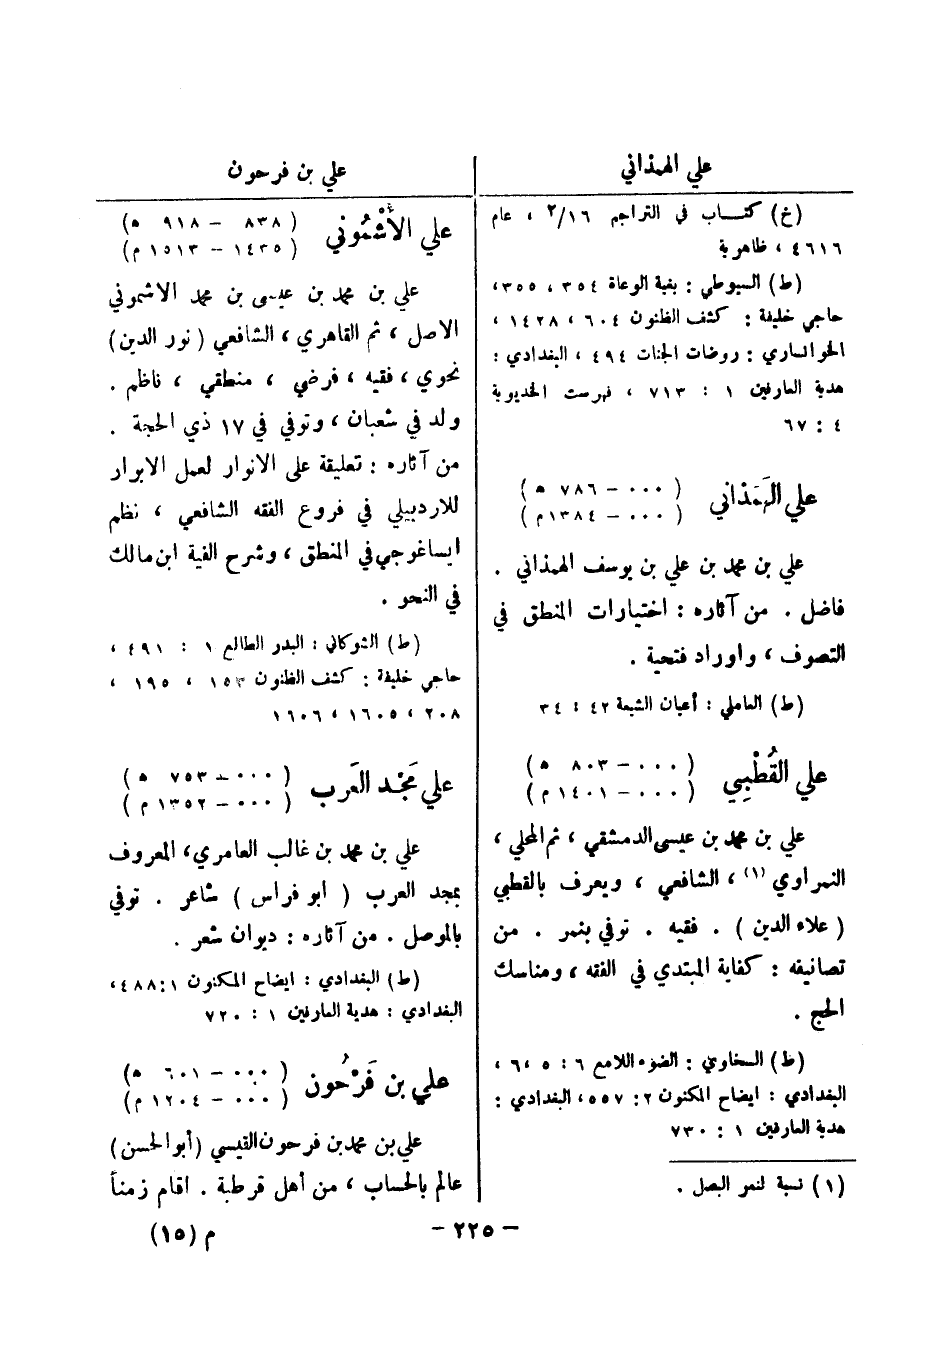 علي الهمذاني
(خ) كتاب في التراجم ٢/١٦ ، عام
٤٦١٦ ، ظاهرية
(ط) السيوطي : بغية الوعاة ٣٥٤ ، ٣٥٥،
حاجي خليفة : كشف الظنون ٦٠٤ ، ١٤٢٨ ،
الخوانساري : روضات الجنات ٤٩٤ ، البغدادي :
هدية العارفين ١ : ٧١٣ ، فهرست الخديوية
٤ : ٦٧
علي الهَمَذاني ( ٠٠٠ – ٧٨٦ ه )
( ٠٠٠ – ١٣٨٤ م )
علي بن محمد بن علي بن يوسف الهمذاني .
فاضل . من آثاره : اختيارات المنطق في
التصوف ، واوراد فتحية .
(ط) العاملي : أعيان الشيعة ٤٢ : ٣٤
علي القُطْبِي ( ٠٠٠ – ٨٠٣ ه )
( ٠٠٠ – ١٤٠١ م )
علي بن محمد بن عيسى الدمشقي ، ثم المحلي ،
النمراوي (١) ، الشافعي ، ويعرف بالقطبي
( علاء الدين ) . فقيه . توفي بنمر . من
تصانيفه : كفاية المبتدي في الفقه ، ومناسك
الحج .
(ط) السخاوي : الضوء اللامع ٦ : ٥ ،٦ ،
البغدادي : ايضاح المكنون ٢ : ٥٥٧، البغدادي :
هدية العارفين ١ : ٧٣٠
(١) نسبة لنمر البصل .
علي بن فرحون
علي الأُشْمُوني ( ٨٣٨ – ٩١٨ ه )
( ١٤٣٥ – ١٥١٣ م )
علي بن محمد بن عيسى بن محمد الاشموني
الاصل ، ثم القاهري ، الشافعي ( نور الدين )
نحوي ، فقيه ، فرضي ، منطقي ، ناظم .
ولد في شعبان ، وتوفي في ١٧ ذي الحجة .
من آثاره : تعليقة على الانوار لعمل الابرار
للاردبيلي في فروع الفقه الشافعي ، نظم
ايساغوجي في المنطق ، وشرح الفية ابن مالك
في النحو .
(ط) الشوكاني : البدر الطالع ١ : ٤٩١ ،
حاجي خليفة : كشف الظنون ١٥٣ ، ١٩٥ ،
٢٠٨ ، ١٦٠٥ ، ١٦٠٦
علي مَجْد العَرب ( ٠٠٠ – ٧٥٣ ه )
( ٠٠٠ – ١٣٥٢ م )
علي بن محمد بن غالب العامري، المعروف
بمجد العرب ( ابو فراس ) شاعر . توفي
بالموصل . من آثاره : ديوان شعر .
(ط) البغدادي : ايضاح المكنون ١ :٤٨٨ ،
البغدادي : هدية العارفين ١ : ٧٢٠
علي بن فَرْحُون ( ٠٠٠ – ٦٠١ ه )
( ٠٠٠ – ١٢٠٤ م )
علي بن محمد بن فرحون القيسي (أبو الحسن)
عالم بالحساب ، من أهل قرطبة . اقام زمناً
– ٢٢٥ –
م (١٥)